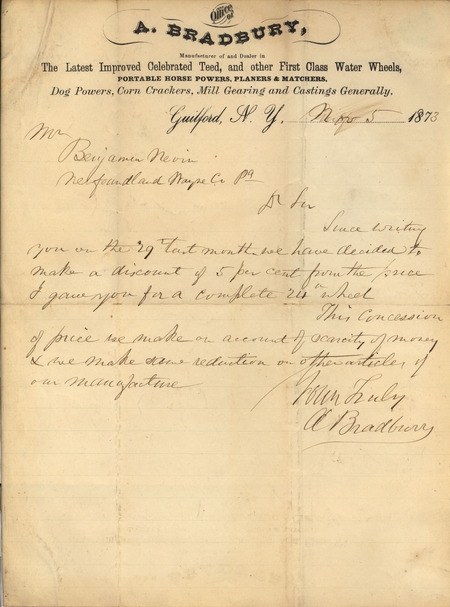 Office of
A. BRADBURY,
Manufacturer of and Dealer in
The Latest Improved Celebrated Teed, and other First Class Water Wheels,
PORTABLE HORSE POWERS, PLANERS & MATCHERS,
Dog Powers, Corn Crackers, Mill Gearing and Castings Generally.
Guilford, N. Y. Nov 5 1873
Mr
Benjamin Nevin
Newfoundland Wayne Co Pa
Dr Sir
Since writing
you on the 29" last month we have decided to
make a discount of 5 per cent from the price
I gave you for a complete 24" wheel
This concession
of price we make on account of scarcity of money
& we make same reduction on other articles of
our manufacture
Yours Truly
A Bradbury